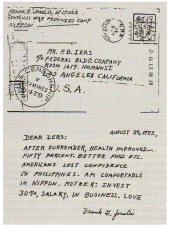 FRANK G. JONELIS, 1ST LT. USA
ZENTSUJI WAR PRISONERS CAMP
NIPPON
MR. F.B. IERS
% FEDERAL BLDG. COMPANY
LOS ANGELES CALIFORNIA
U.S.A.
DEAR IERS: AUGUST 29, 1943.
AFTER SURRENDER, HEALTH IMPROVED—
FIFTY PERCENT. BETTER FOOD ETC.
AMERICANS LOST CONFIDENCE
IN PHILIPPINES. AM COMFORTABLE
IN NIPPON. MOTHER: INVEST
30%, SALARY, IN BUSINESS. LOVE
Frank G. Jonelis